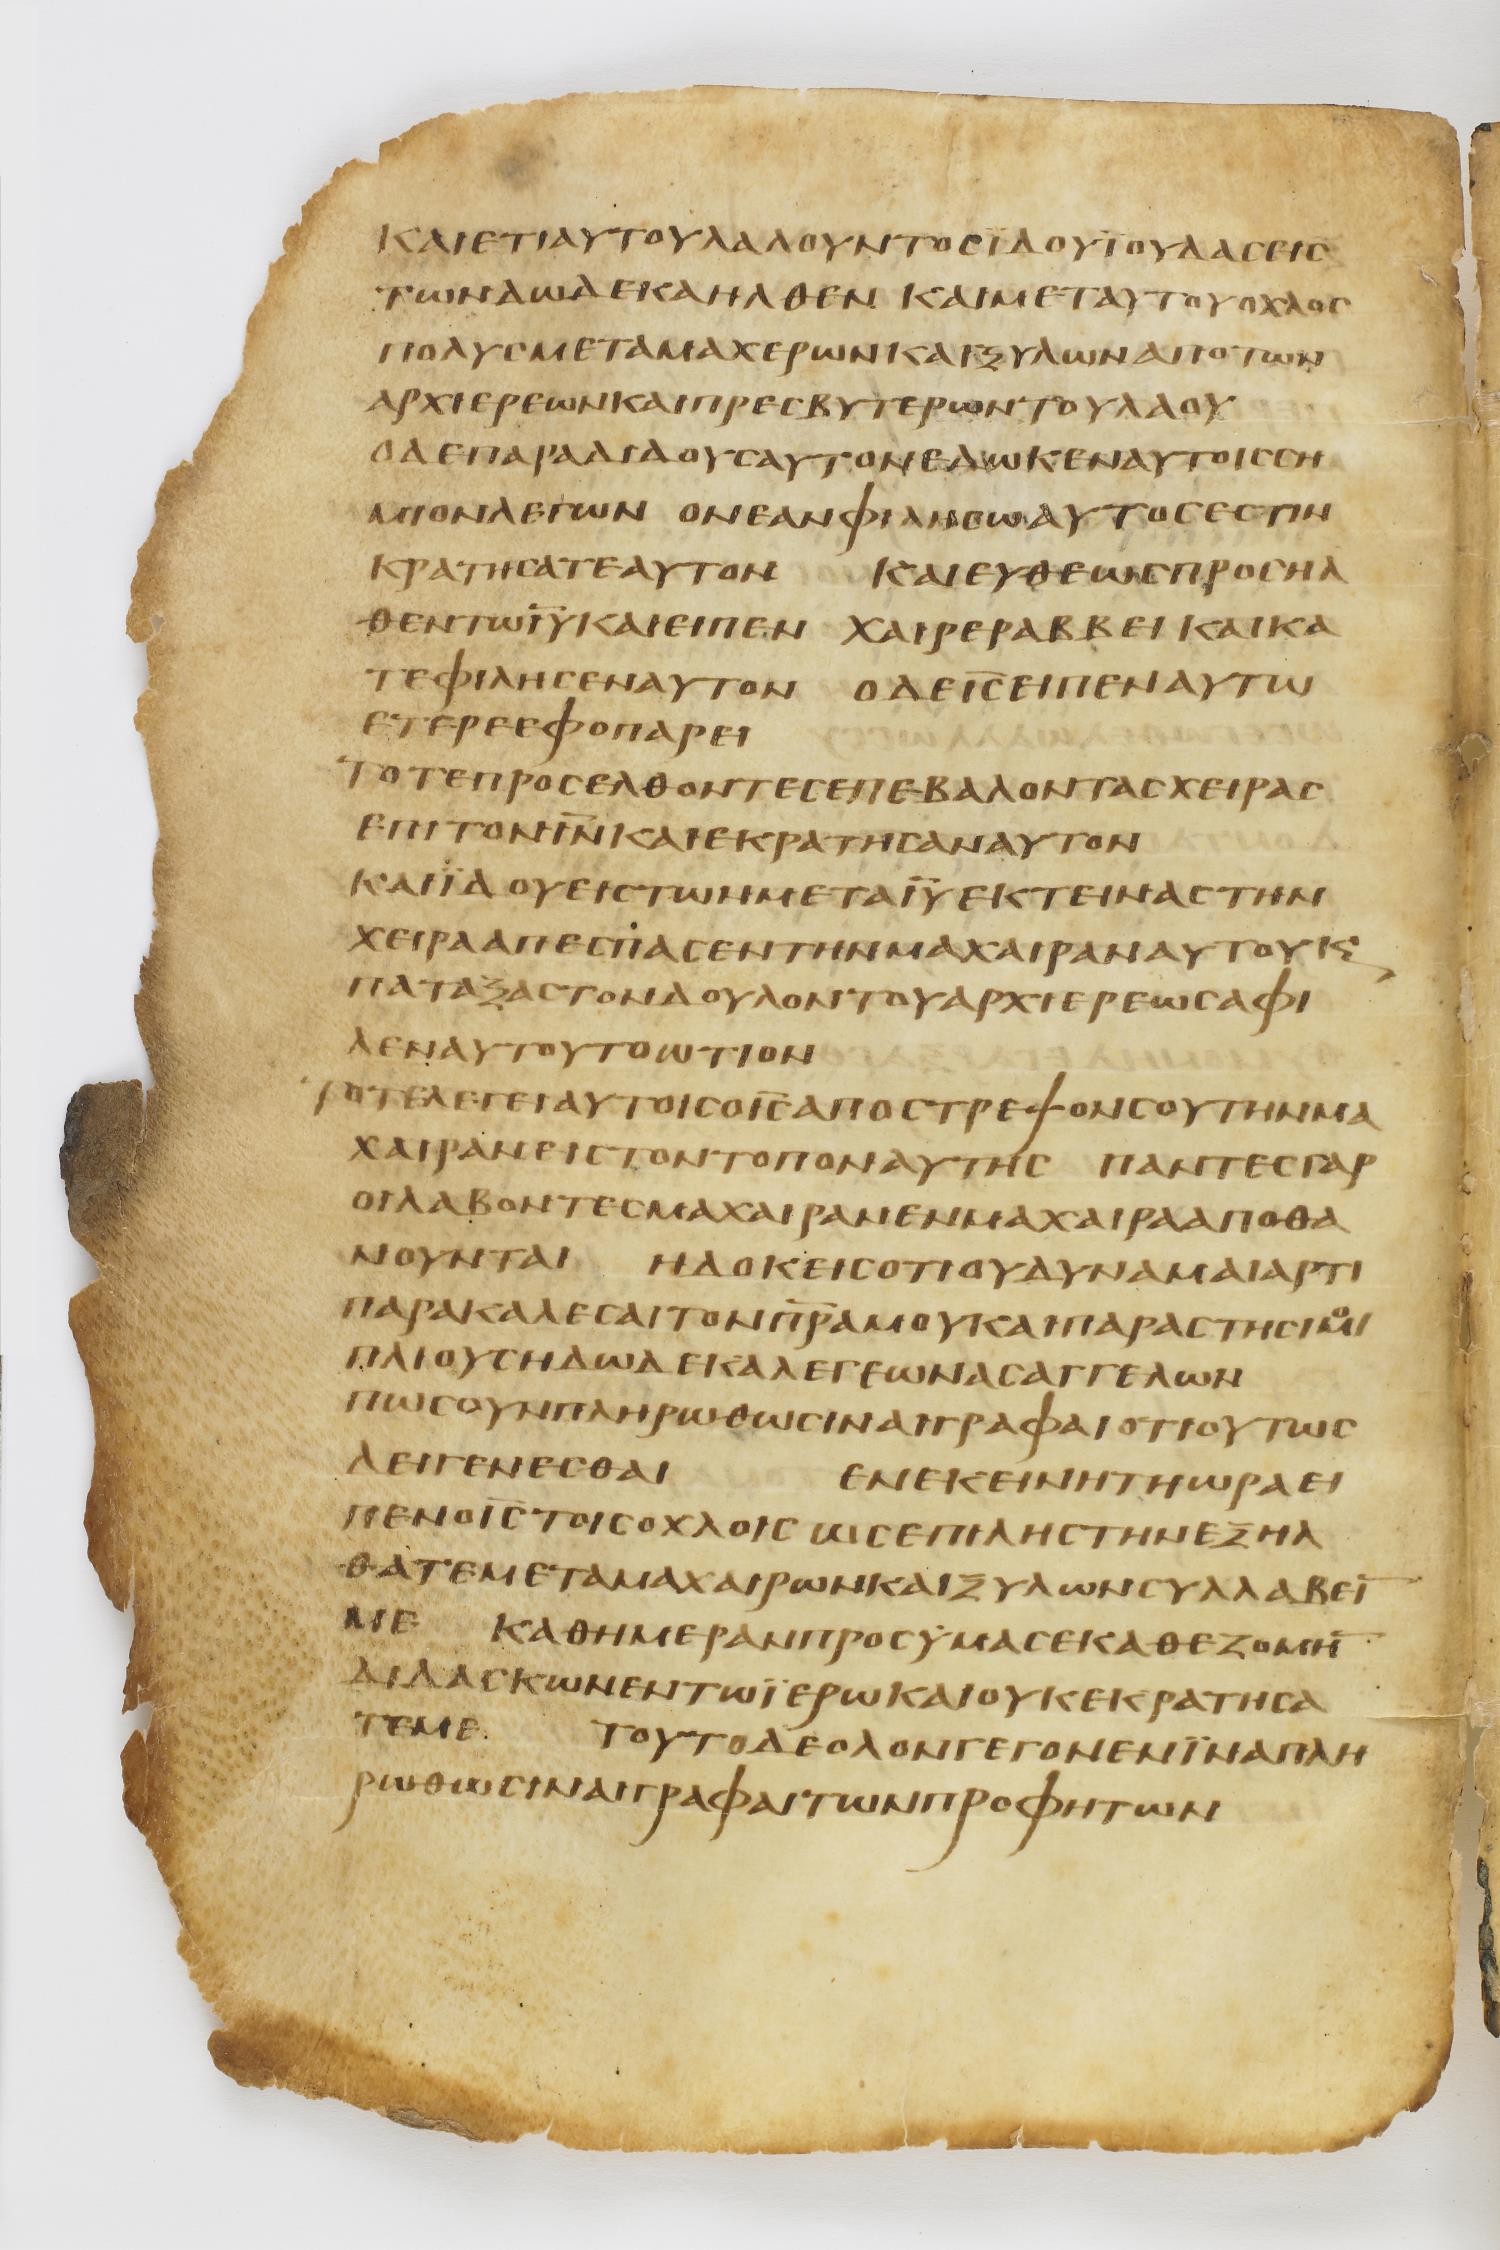 ΚΑΙΕΤΙΑΥΤΟΥΛΑΛΟΥΝΤΟΣΪΔΟΥΪΟΥΔΑΣΕΙΣ
ΤΩΝΔΩΔΕΚΑΗΛΘΕΝ ΚΑΙΜΕΤΑΥΤΟΥΟΧΛΟΣ
ΠΟΛΥΣΜΕΤΑΜΑΧΕΡΩΝΚΑΙΞΥΛΩΝΑΠΟΤΩΝ
ΑΡΧΙΕΡΕΩΝΚΑΙΠΡΕΣΒΥΤΕΡΩΝΤΟΥΛΑΟΥ
ΟΔΕΠΑΡΑΔΙΔΟΥΣΑΥΤΟΝΕΔΩΚΕΝΑΥΤΟΙΣΣΗ
ΜΙΟΝΛΕΓΩΝ ΟΝΕΑΝΦΙΛΗΣΩΑΥΤΟΣΕΣΤΙΝ
ΚΡΑΤΗΣΑΤΕΑΥΤΟΝ ΚΑΙΕΥΘΕΩΣΠΡΟΣΗΛ
ΘΕΝΤΩΙ̅Υ̅ΚΑΙΕΙΠΕΝ ΧΑΙΡΕΡΑΒΒΕΙ ΚΑΙΚΑ
ΤΕΦΙΛΗΣΕΝΑΥΤΟΝ ΟΔΕΙ̅Σ̅ΕΙΠΕΝΑΥΤΩ
ΕΤΕΡΕΕΦΟΠΑΡΕΙ
ΤΟΤΕΠΡΟΣΕΛΘΟΝΤΕΣΕΠΕΒΑΛΟΝΤΑΣΧΕΙΡΑΣ
ΕΠΙΤΟΝΙ̅Ν̅ΚΑΙΕΚΡΑΤΗΣΑΝΑΥΤΟΝ
ΚΑΙΪΔΟΥΕΙΣΤΩΝΜΕΤΑΙ̅Υ̅ΕΚΤΕΙΝΑΣΤΗΝ
ΧΕΙΡΑΑΠΕΣΠΑΣΕΝΤΗΝΜΑΧΑΙΡΑΝΑΥΤΟΥΚϛ
ΠΑΤΑΞΑΣΤΟΝΔΟΥΛΟΝΤΟΥΑΡΧΙΕΡΕΩΣΑΦΙ
ΛΕΝΑΥΤΟΥΤΟΩΤΙΟΝ
ΤΟΤΕΛΕΓΕΙΑΥΤΟΙΣΟΙ̅Σ̅ΑΠΟΣΤΡΕΨΟΝΣΟΥΤΗΝΜΑ
ΧΑΙΡΑΝΕΙΣΤΟΝΤΟΠΟΝΑΥΤΗΣ ΠΑΝΤΕΣΓΑΡ
ΟΙΛΑΒΟΝΤΕΣΜΑΧΑΙΡΑΝΕΝΜΑΧΑΙΡΑΑΠΟΘΑ
ΝΟΥΝΤΑΙ ΗΔΟΚΕΙΣΟΤΙΟΥΔΥΝΑΜΑΙΑΡΤΙ
ΠΑΡΑΚΑΛΕΣΑΙΤΟΝΠ̅Ρ̅Α̅ΜΟΥΚΑΙΠΑΡΑΣΤΗΣΙΜΟΙ
ΠΛΙΟΥΣΗΔΩΔΕΚΑΛΕΓΕΩΝΑΣΑΓΓΕΛΩΝ
ΠΩΣΟΥΝΠΛΗΡΩΘΩΣΙΝΑΙΓΡΑΦΑΙΟΤΙΟΥΤΩΣ
ΔΕΙΓΕΝΕΣΘΑΙ ΕΝΕΚΕΙΝΗΤΗΩΡΑΕΙ
ΠΕΝΟΙ̅Σ̅ΤΟΙΣΟΧΛΟΙΣ ΩΣΕΠΙΛΗΣΤΗΝΕΞΗΛ
ΘΑΤΕΜΕΤΑΜΑΧΑΙΡΩΝΚΑΙΞΥΛΩΝΣΥΛΛΑΒΕΙ̅
ΜΕ ΚΑΘΗΜΕΡΑΝΠΡΟΣΫΜΑΣΕΚΑΘΕΖΟΜΗ̅
ΔΙΔΑΣΚΩΝΕΝΤΩΪΕΡΩΚΑΙΟΥΚΕΚΡΑΤΗΣΑ
ΤΕΜΕ ΤΟΥΤΟΔΕΟΛΟΝΓΕΓΟΝΕΝΪΝΑΠΛΗ
ΡΩΘΩΣΙΝΑΙΓΡΑΦΑΙΤΩΝΠΡΟΦΗΤΩΝ